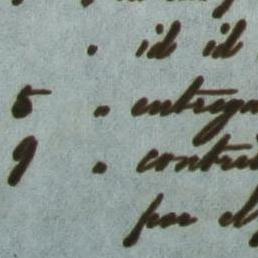 " id id
5 " entrega
9 " contri
por el